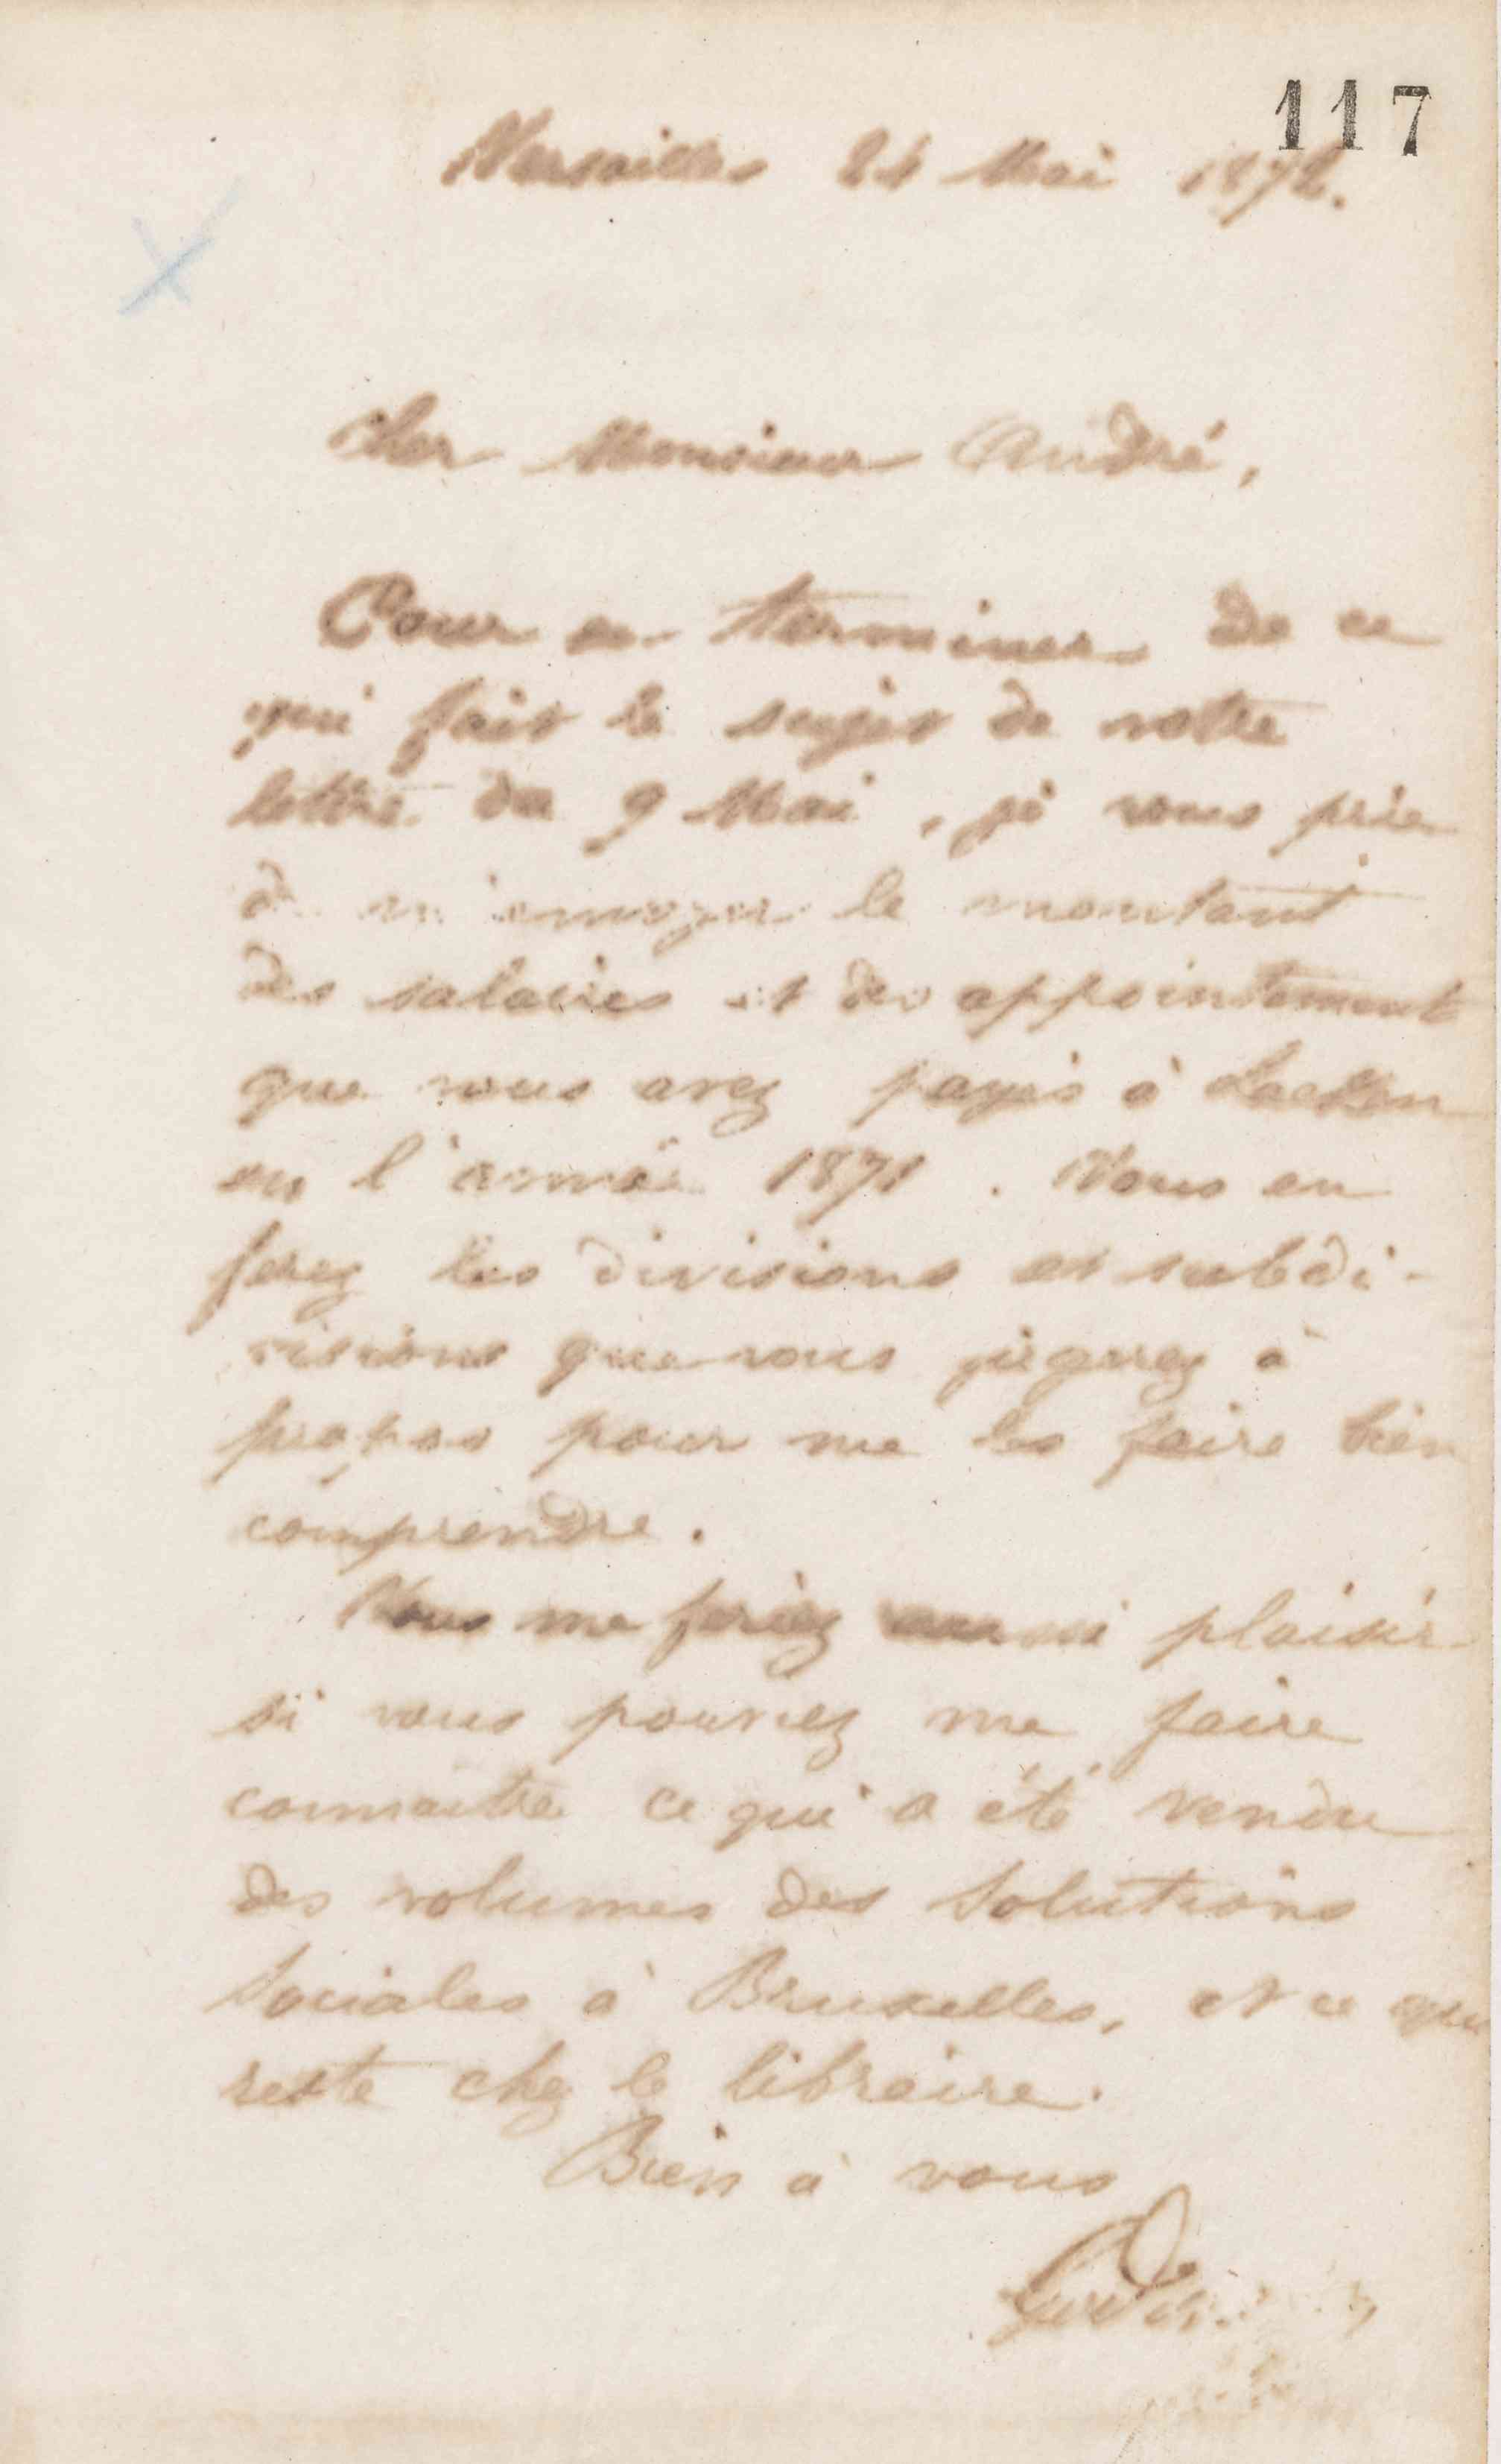 117
Versailles 21 Mai 1872.
Cher Monsieur André,
Pour en terminer de ce
qui fait le sujet de votre
lettre du 9 Mai, je vous prie
de m'envoyer le montant
des salaires et des appointement
que vous avez payés à Laeken
en l'année 1871. Vous en
ferez les divisions et subdi-
visions que vous jugerez à
propos pour me les faire bien
comprendre.
Vous me feriez aussi plaisir
si vous pouviez me faire
connaitre ce qui a été vendu
des volumes des Solutions
Sociales à Bruxelles, et ce qui
reste chez le libraire.
Bien à vous
Godin